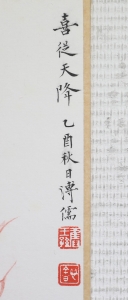 喜從天降乙酉秋日溥儒